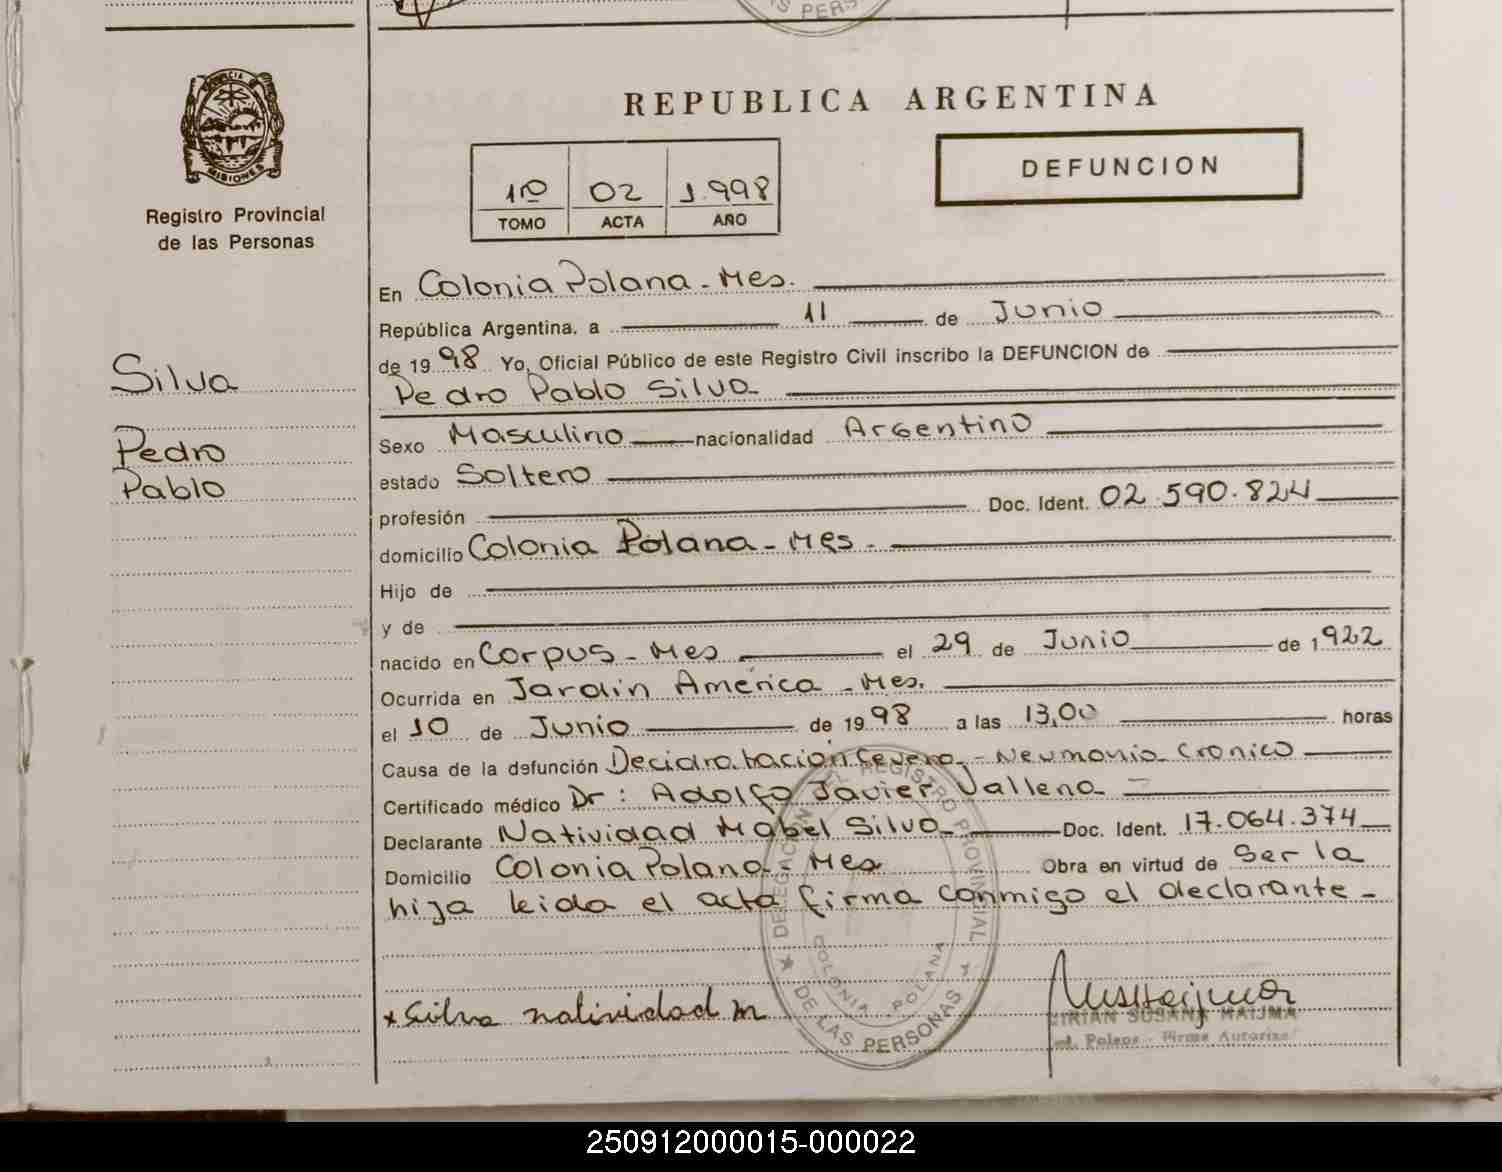 REPUBLICA ARGENTINA
DEFUNCION
1ro 02 1.998
TOMO ACTA AÑO
MISIONES
Registro Provincial
de las Personas
Silva
Pedro
Pablo
En Colonia Polana - Mes.
República Argentina, a 11 de Junio
de 1998 Yo, Oficial Público de este Registro Civil inscribo la DEFUNCION de
Pedro Pablo Silva
Sexo Masculino nacionalidad Argentino
estado Soltero
profesión Doc. Ident. 02.590.824
domicilio Colonia Polana - Mes -
Hijo de
y de
nacido en Corpus - Mes el 29 de Junio de 1922
Ocurrida en Jardin América - Mes.
el 10 de Junio de 1998 a las 13,00 horas
Causa de la defunción Decidratación Cevera - Neumonia Cronica
Certificado médico Dr: Adolfo Javier Vallena
Declarante Natividad Mabel Silva Doc. Ident. 17.064.374
Domicilio Colonia Polana - Mes Obra en virtud de Ser la
hija leida el acta firma conmigo el declarante -
Silva natividad m
DELEGACION DEL REGISTRO PROVINCIAL
DE LAS PERSONAS
COLONIA POLANA
SUSANA HAIJMA
250912000015-000022